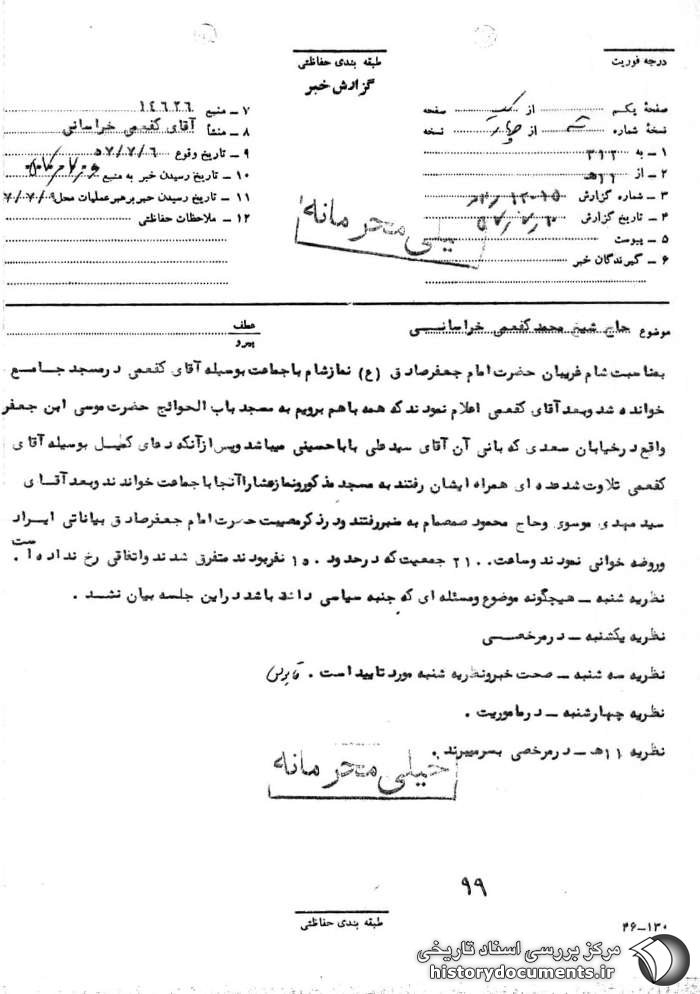 درجه فوریت
طبقه بندی حفاظتی
گزارش خبر
صفحهٔ یکم از یک صفحه
نسخهٔ شماره از نسخه
۱ – به ۳۱۲
۲ – از ۱۱ﻫ
۳ – شماره گزارش
۴ – تاریخ گزارش
۵ – پیوست
۶ – گیرندگان خبر
۷ – منبع ۱۴۶۲۶
۸ – منشأ آقای کفعمی خراسانی
۹ – تاریخ وقوع ۵۷/۷/۶
۱۰ – تاریخ رسیدن خبر به منبع
۱۱ – تاریخ رسیدن خبر برهبر عملیات محل
۱۲ – ملاحظات حفاظتی
خیلی محرمانه
موضوع حاج شیخ محمد کفعمی خراسانی
عطف
پیرو
بمناسبت شام غریبان حضرت امام جعفر صادق (ع) نماز شام با جماعت بوسیله آقای کفعمی در مسجد جامع
خوانده شد و بعد آقای کفعمی اعلام نمودند که همه با هم برویم به مسجد باب الحوائج حضرت موسی ابن جعفر
واقع در خیابان سعدی که بانی آن آقای سید علی باباحسینی میباشد و پس از آنکه دعای کمیل بوسیله آقای
کفعمی تلاوت شد عده ای همراه ایشان رفتند به مسجد مذکور و نماز عشا را آنجا با جماعت خواندند و بعد آقای
سید مهدی موسوی و حاج محمود صمصام به منبر رفتند و در ذکر مصیبت حضرت امام جعفر صادق بیاناتی ایراد
و روضه خوانی نمودند و ساعت ۲۱۰۰ جمعیت که در حدود ۱۵۰ نفر بودند متفرق شدند و اتفاقی رخ نداده است .
نظریه شنبه – هیچگونه موضوع و مسئله ای که جنبه سیاسی داشته باشد در این جلسه بیان نشد .
نظریه یکشنبه – در مرخصی
نظریه سه شنبه – صحت خبر و نظریه شنبه مورد تایید است .
نظریه چهارشنبه – در ماموریت .
نظریه ۱۱ﻫ – در مرخصی بسر میبرند .
خیلی محرمانه
۹۹
طبقه بندی حفاظتی
۳۶–۱۳۰
مرکز بررسی اسناد تاریخی
historydocuments.ir